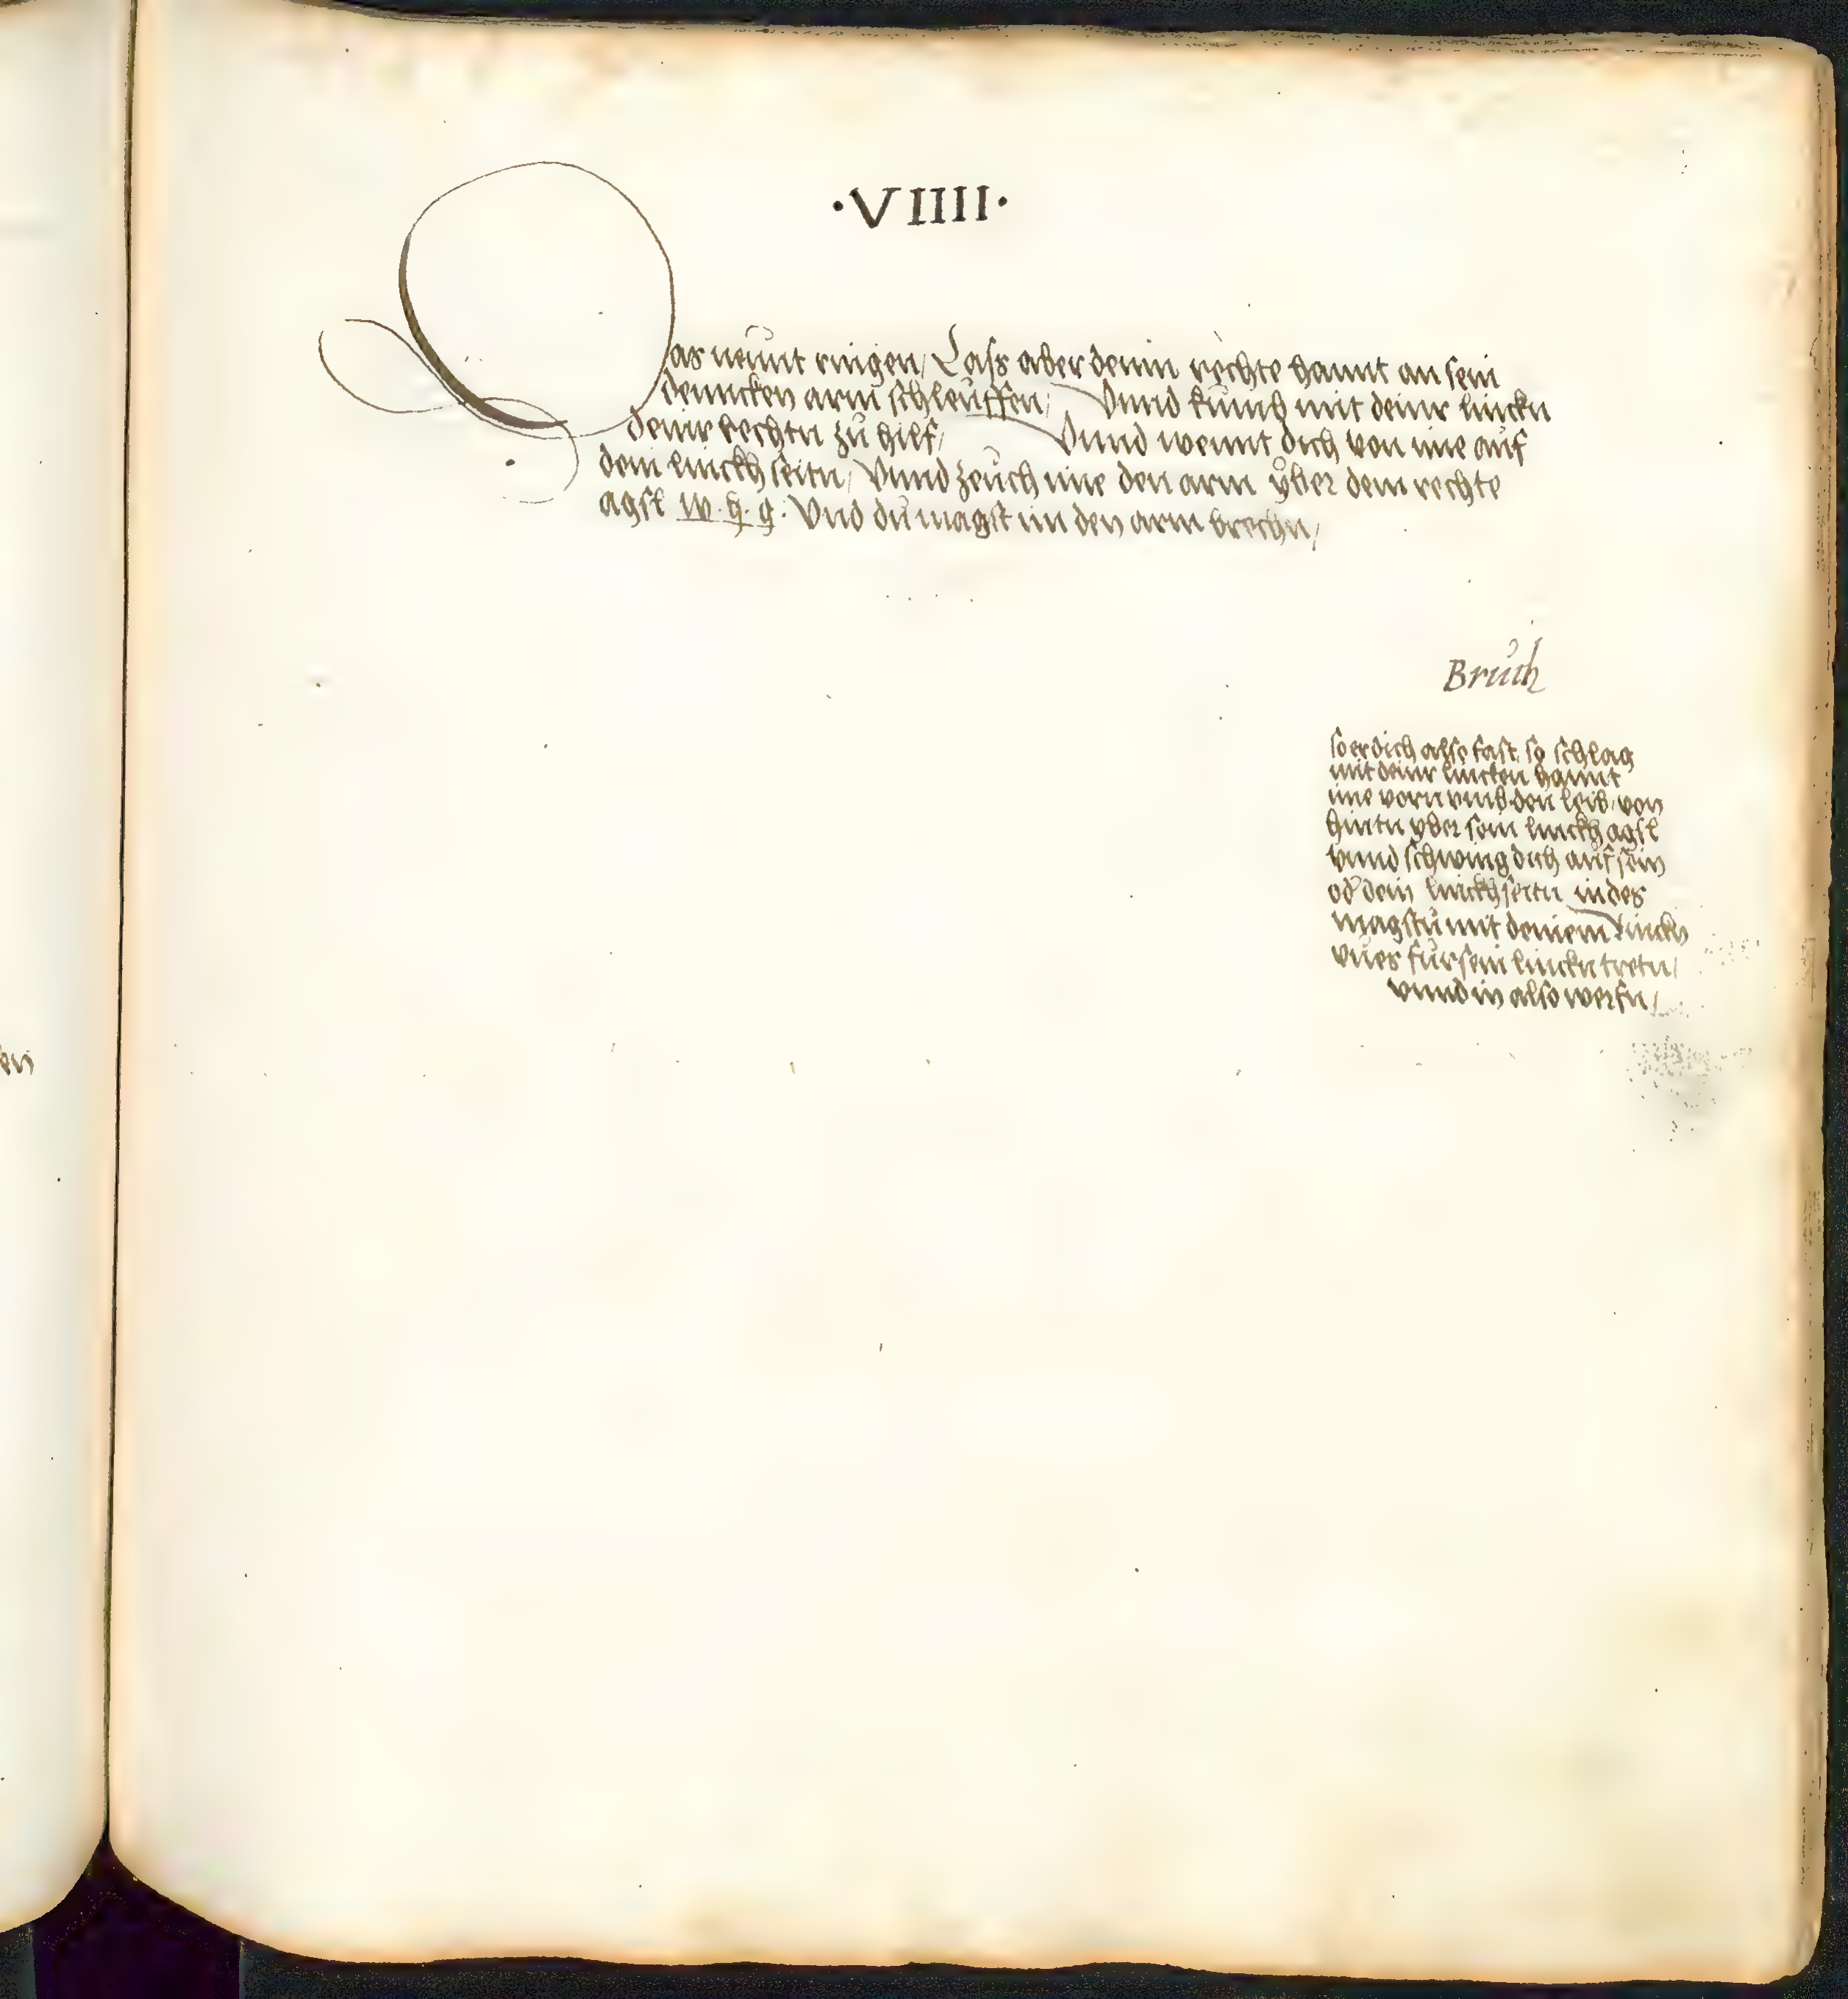 ·VIIII·
Das neünt ringen, Lass aber denin rechte hannt an sein
denncken arm schleüffen, Vnnd kümb mit deinr linckn
deinr rechtn zü hilf, Vnnd wennt dich von ime aüf
dein linckh seitn, Vnnd zeüch ime den arm ÿber dein rechte
agsl w. h. g. Vnd dü magst im den arm brechn,
Brüch
so er dich also fast, so schlag
mit deinr lincken hannt
ime vorn vmb den leib, von
hintn yber sein linckh agsl
vnnd schwing dich aüf sein
od dein linckh seitn in des
magstü mit deinem Linckn
vües für sein linckn tretn,
vnnd in also werfn,
en